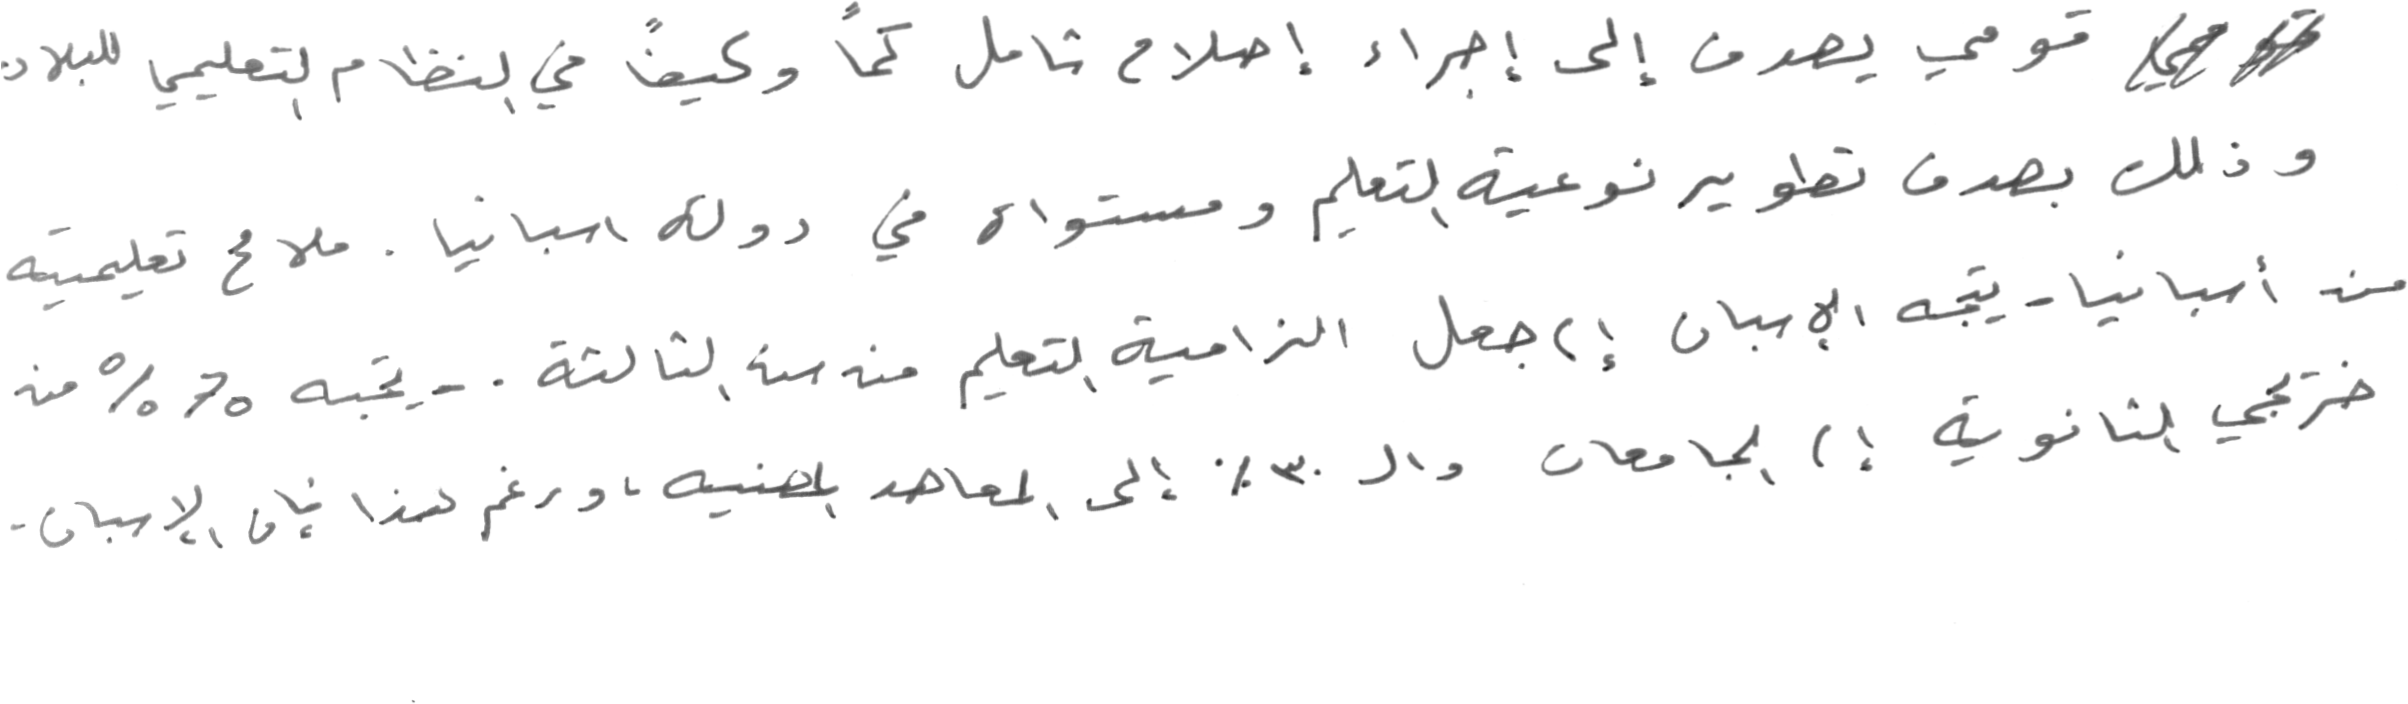 قومي يهدف إلى إجراء إصلاح شامل كماً وكيفاً في النظام التعليمي للبلاد
وذلك بهدف تطوير نوعية التعليم ومستواه في دولة اسبانيا. ملامح تعليمية
من أسبانيا - يتجه الإسبان إلى جعل الزامية التعليم من سن الثالثة. - يتجه 70% من
خريجي الثانوية إلى الجامعات والـ ٣٠٪ إلى المعاهد المهنية، ورغم هذا فإن الإسبان -